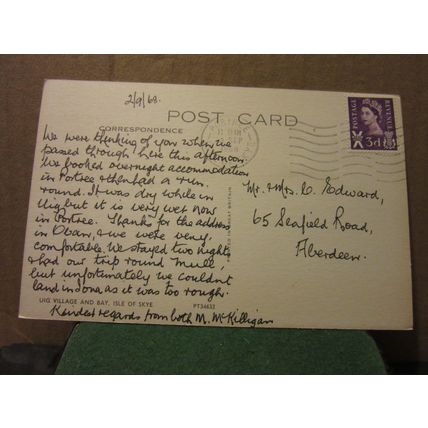 2/9/68.
POST CARD
CORRESPONDENCE
We were thinking of you when we
passed through here this afternoon.
We booked overnight accommodation
in Portree & then had a run
round. It was dry while in
Uig but it is very wet now
in Portree. Thanks for the address
in Oban, & we were very
comfortable. We stayed two nights
& had our trip round Mull,
but unfortunately we couldn't
land in Iona as it was too rough.
UIG VILLAGE AND BAY, ISLE OF SKYE
PT34632
Kindest regards from both M. McKilligan
POSTAGE
REVENUE
3d
Mr. & Mrs. C. Edward,
65 Seafield Road,
Aberdeen.